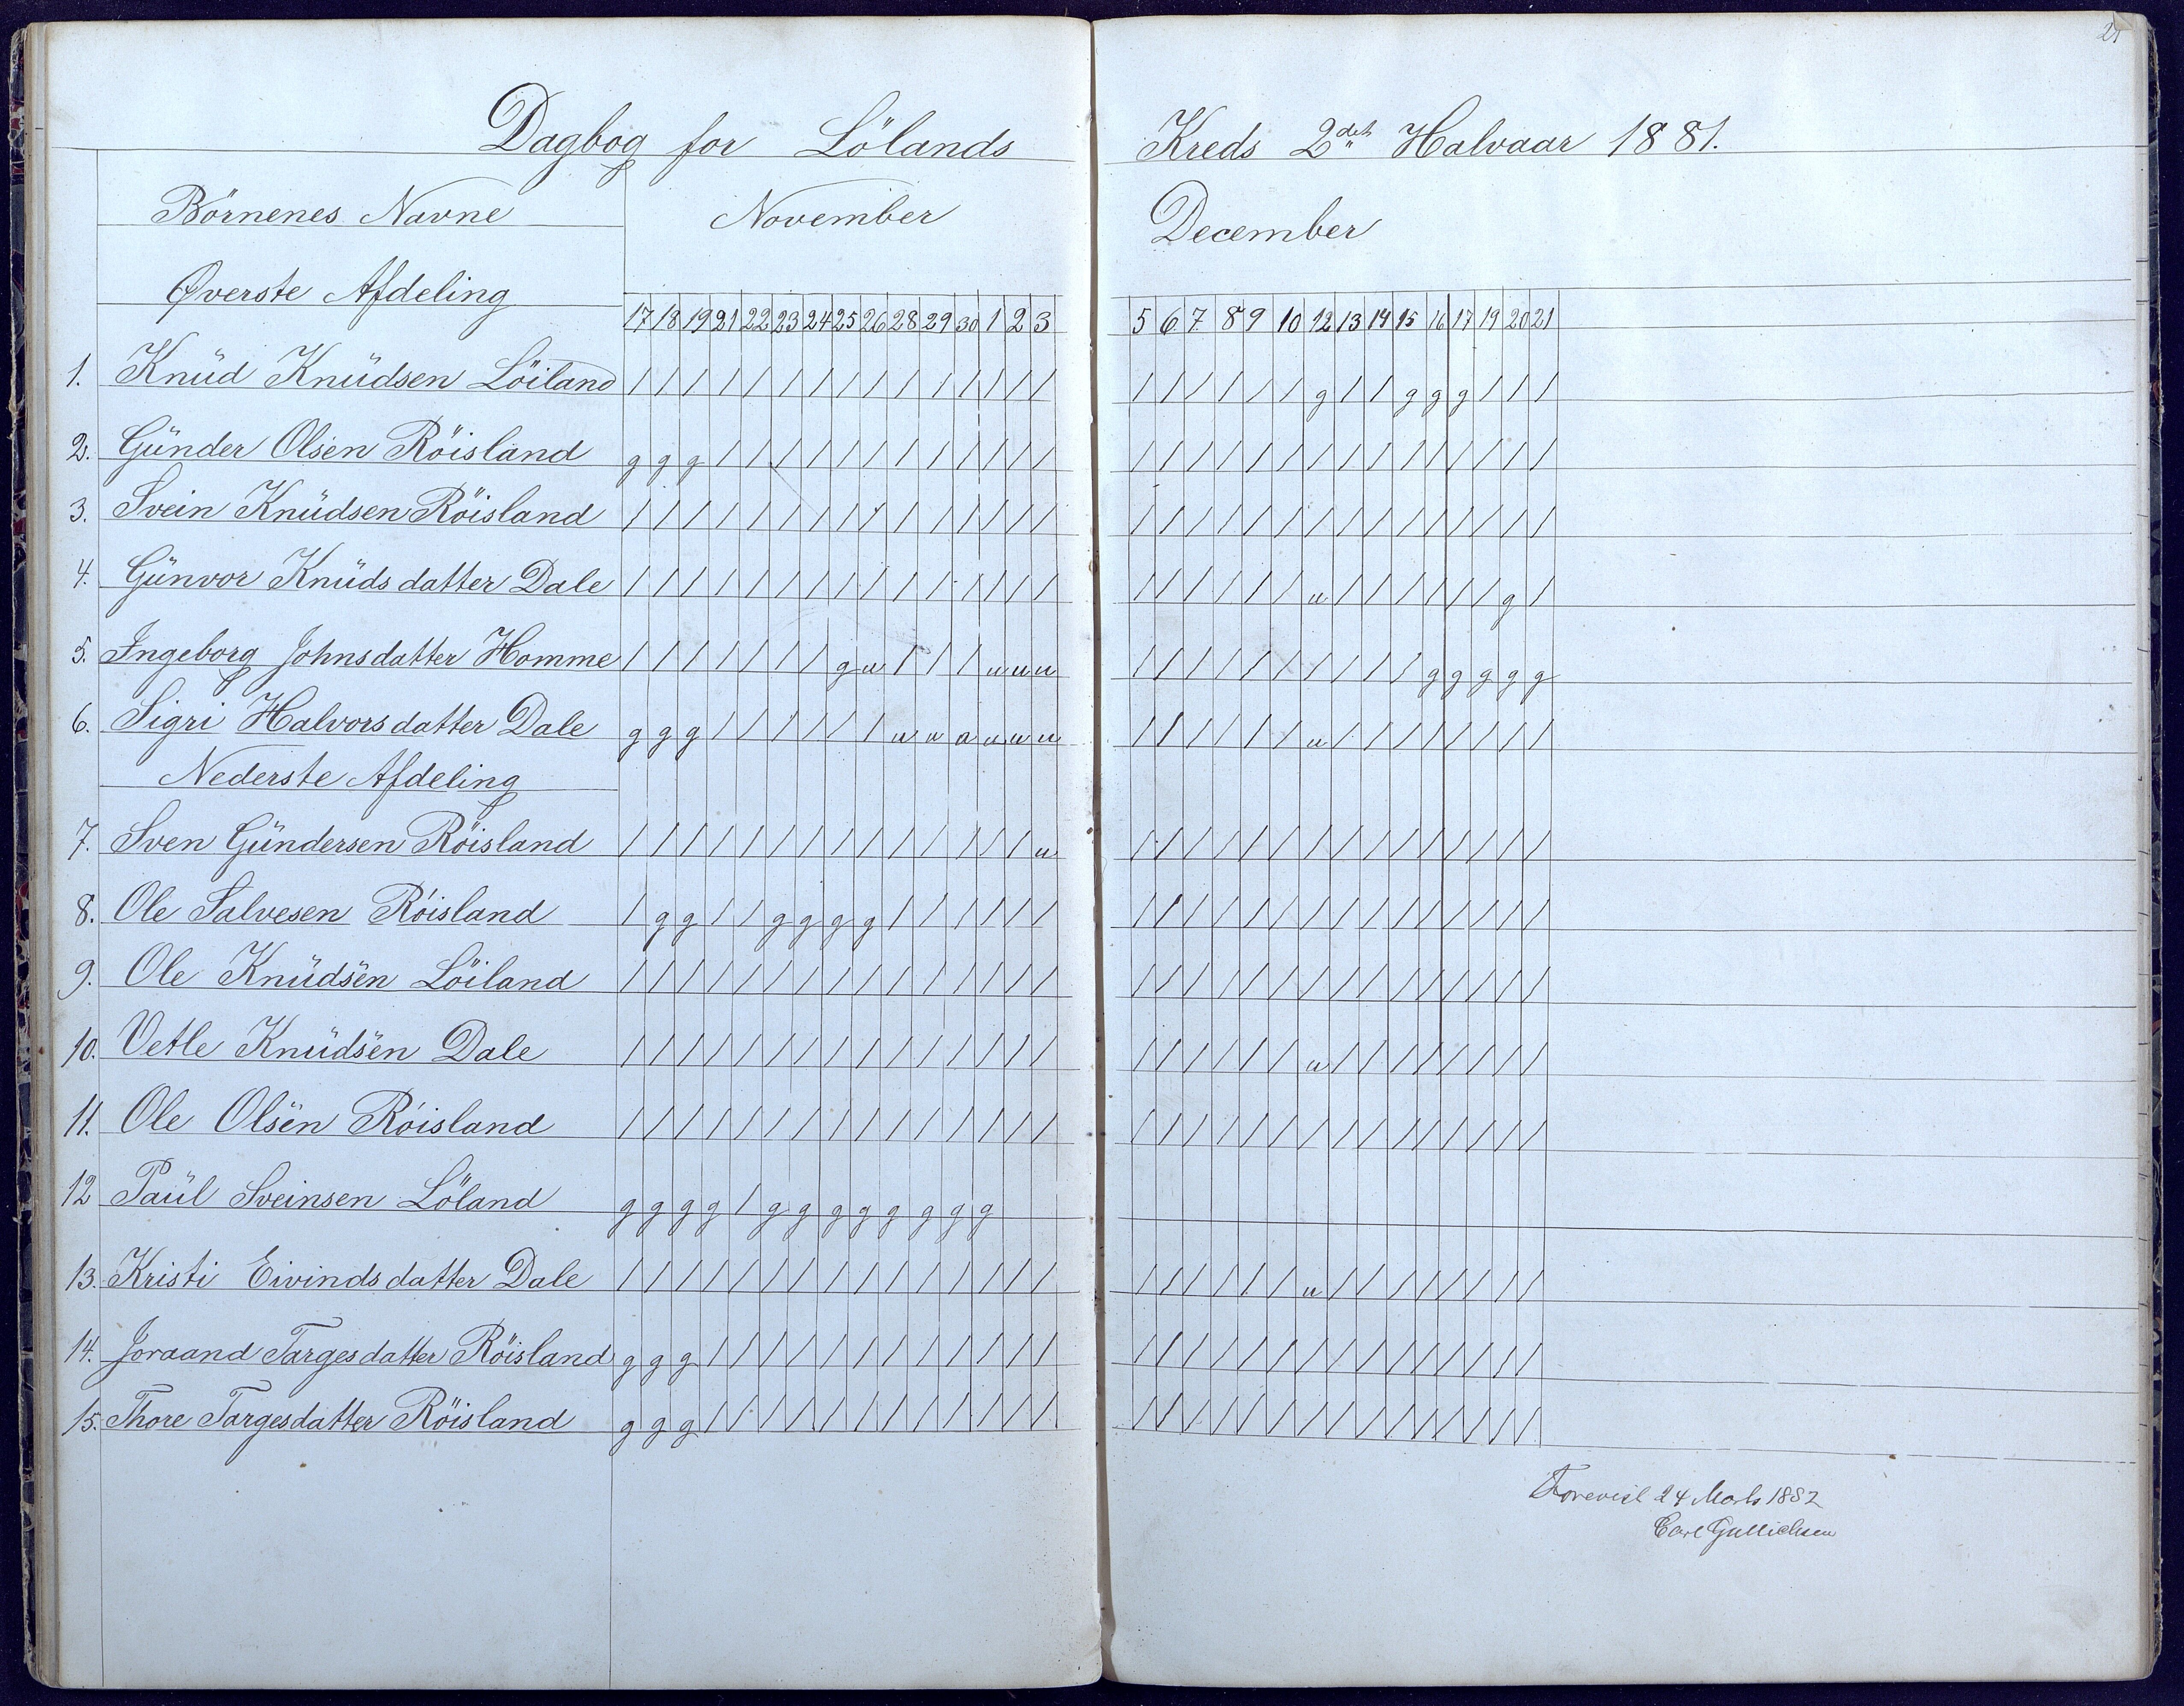 21
Dagbog for Lölands Kreds 2det Halvaar 1881.
Börnenes Navne November December
Øverste Afdeling
17 18 19 21 22 23 24 25 26 28 29 30 1 2 3 5 6 7 8 9 10 12 13 14 15 16 17 19 20 21
1. Knüd Knüdsen Löiland / / / / / / / / / / / / / / / / / / / / / g / / g g g / / /
2. Günder Olsen Röisland g g g / / / / / / / / / / / / / / / / / / / / / / / / / / /
3. Svein Knüdsen Röisland / / / / / / / / / / / / / / / / / / / / / / / / / / / / / /
4. Günvor Knüdsdatter Dale / / / / / / / / / / / / / / / / / / / / / u / / / / / / g /
5. Ingeborg Johnsdatter Homme / / / / / / / g u / / / u u u / / / / / / / / / / g g g g g
6. Sigri Halvorsdatter Dale g g g / / / / / / u u u u u u / / / / / / u / / / / / / / /
Nederste Afdeling
7. Sven Gündersen Röisland / / / / / / / / / / / / / / u / / / / / / / / / / / / / / /
8. Ole Salvesen Röisland / g g / / g g g g / / / / / / / / / / / / / / / / / / / / /
9. Ole Knüdsen Löiland / / / / / / / / / / / / / / / / / / / / / / / / / / / / / /
10. Vetle Knüdsen Dale / / / / / / / / / / / / / / / / / / / / / u / / / / / / / /
11. Ole Olsen Röisland / / / / / / / / / / / / / / / / / / / / / / / / / / / / / /
12 Paül Sveinsen Löland g g g g / g g g g g g g g
13. Kristi Eivindsdatter Dale / / / / / / / / / / / / / / / / / / / / / u / / / / / / / /
14. Joraand Targesdatter Röisland g g g / / / / / / / / / / / / / / / / / / / / / / / / / / /
15. Thore Targesdatter Röisland g g g / / / / / / / / / / / / / / / / / / / / / / / / / / /
Forevist 24 Marts 1882
Carl Gullichsen